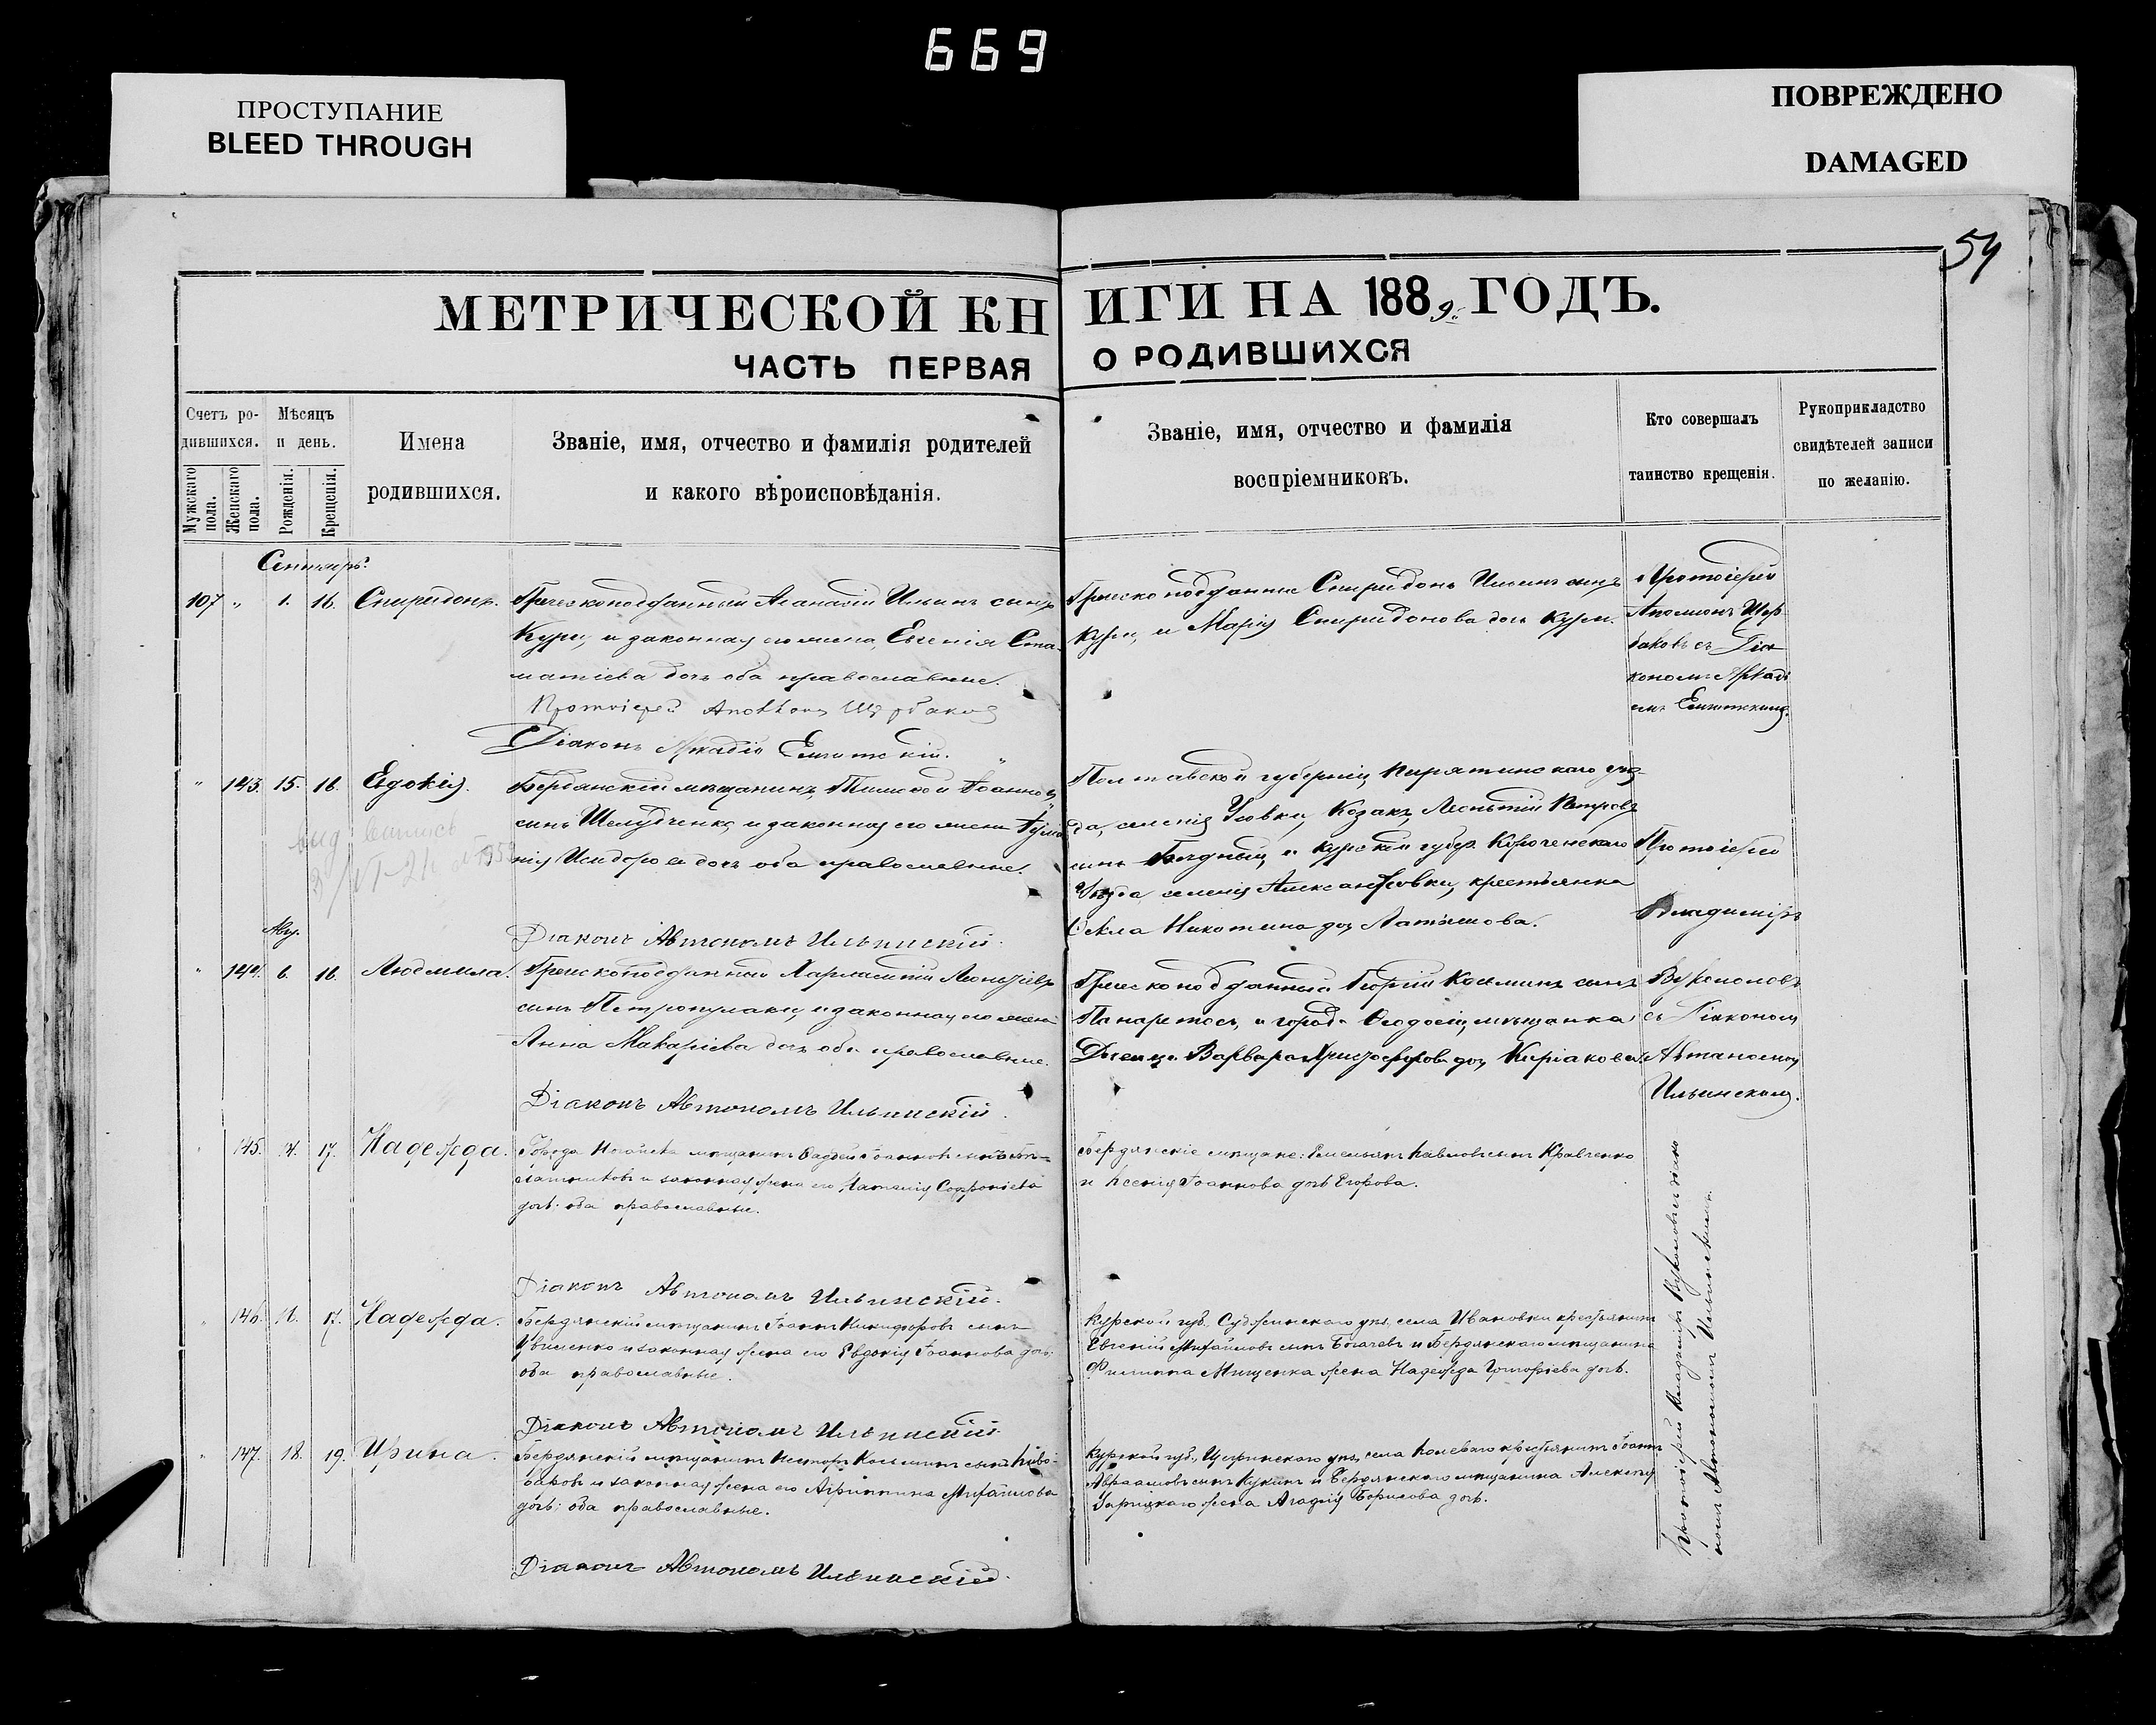 669
ПРОСТУПАНИЕ
BLEED THROUGH
ПОВРЕЖДЕНО
DAMAGED
54
МЕТРИЧЕСКОЙ КНИГИ НА 1889 ГОДЪ.
ЧАСТЬ ПЕРВАЯ О РОДИВШИХСЯ
Счетъ ро-
дившихся.
Мужскаго пола.
Женскаго пола.
Мѣсяцъ
и день.
Рожденія.
Крещенія.
Имена
родившихся.
Званіе, имя, отчество и фамилія родителей
и какого вѣроисповѣданія.
Званіе, имя, отчество и фамилія
воспріемниковъ.
Кто совершалъ
таинство крещенія.
Рукоприкладство
свидѣтелей записи
по желанію.
Сентябрь.
107 „ 1. 16. Спиридонъ.
Греческоподданный Аѳанасій Ильинъ сынъ
Кури, и законная его жена, Евгенія Ста-
матіева дочь оба православные.
Протоіерей
Діаконъ Аркадій
Греческоподданные Спиридонъ Ильинъ сынъ
Кури, и Марія Спиридонова дочь Кури.
Протоіерей
съ Діа
кономъ Аркаді
емъ
„ 143. 15. 16. Евдокія.
Бердянскій мѣщанинъ, Тимоѳей Іоанновъ
сынъ Шелудченко, и законная его жена Іулiа
нія Исидорова дочь оба православные.
Діаконъ Автономъ Ильинскій.
Полтавской губерніи, Пирятинскаго уѣз-
да, селенія Усовки, Козакъ, Леонтій Петровъ
сынъ Бѣдный, и Курской губер. Короченскаго
Уѣзда селенія Александровки, крестьянка
Ѳекла Никитина доч. Латышова.
Протоіерей
Владиміръ
Авг.
„ 144. 6. 16. Людмила.
Греческоподданный Харлампій Леонтіевъ
сынъ Петропулаки, и законная его жена
Анна Макаріева дочь оба православные.
Діаконъ Автономъ Ильинскій.
Греческоподданный Георгій Косминъ сынъ
Панаретосъ, и города Ѳеодосіи, мѣщанка
Варвара Христофорова доч. Киріакова.
Вуколовъ
съ Діакономъ
Автономомъ
Ильинскимъ.
„ 145. 14. 17. Надежда.
Города Ногайска мѣщанинъ Ѳаддей Іоанновъ сынъ
и законная жена его Наталія Софроніева
дочь; оба православные.
Діаконъ Автономъ Ильинскій.
Бердянскіе мѣщане: Емельянъ Павловъ сынъ Кравченко
и Ксенія Іоаннова дочь Егорова.
„ 146. 11. 17. Надежда.
Бердянскій мѣщанинъ Іоаннъ Никифоровъ сынъ
и законная жена его Евдокія Іоаннова дочь;
оба православные.
Діаконъ Автономъ Ильинскій.
Курской губ. Суджинскаго уѣз. села Ивановки крестьянинъ
Евгеній Михайловъ сынъ Богачевъ и Бердянскаго мѣщанина
Филиппа Мищенка жена Надежда Григоріева дочь.
„ 147. 18. 19. Ирина.
Бердянскій мѣщанинъ Несторъ Косминъ сынъ Пиво-
варовъ и законная жена его Агриппина Михайлова
дочь; оба православные.
Діаконъ Автономъ Ильинскій.
Курской губ., Щигринскаго уѣз., села крестьянинъ Іоаннъ
Авраамовъ сынъ Кукинъ и Бердянскаго мѣщанина Алексѣя
жена Агафія Борисова дочь.
Протоіерей Владиміръ Вуколовъ съ діако
номъ Автономомъ Ильинскимъ.